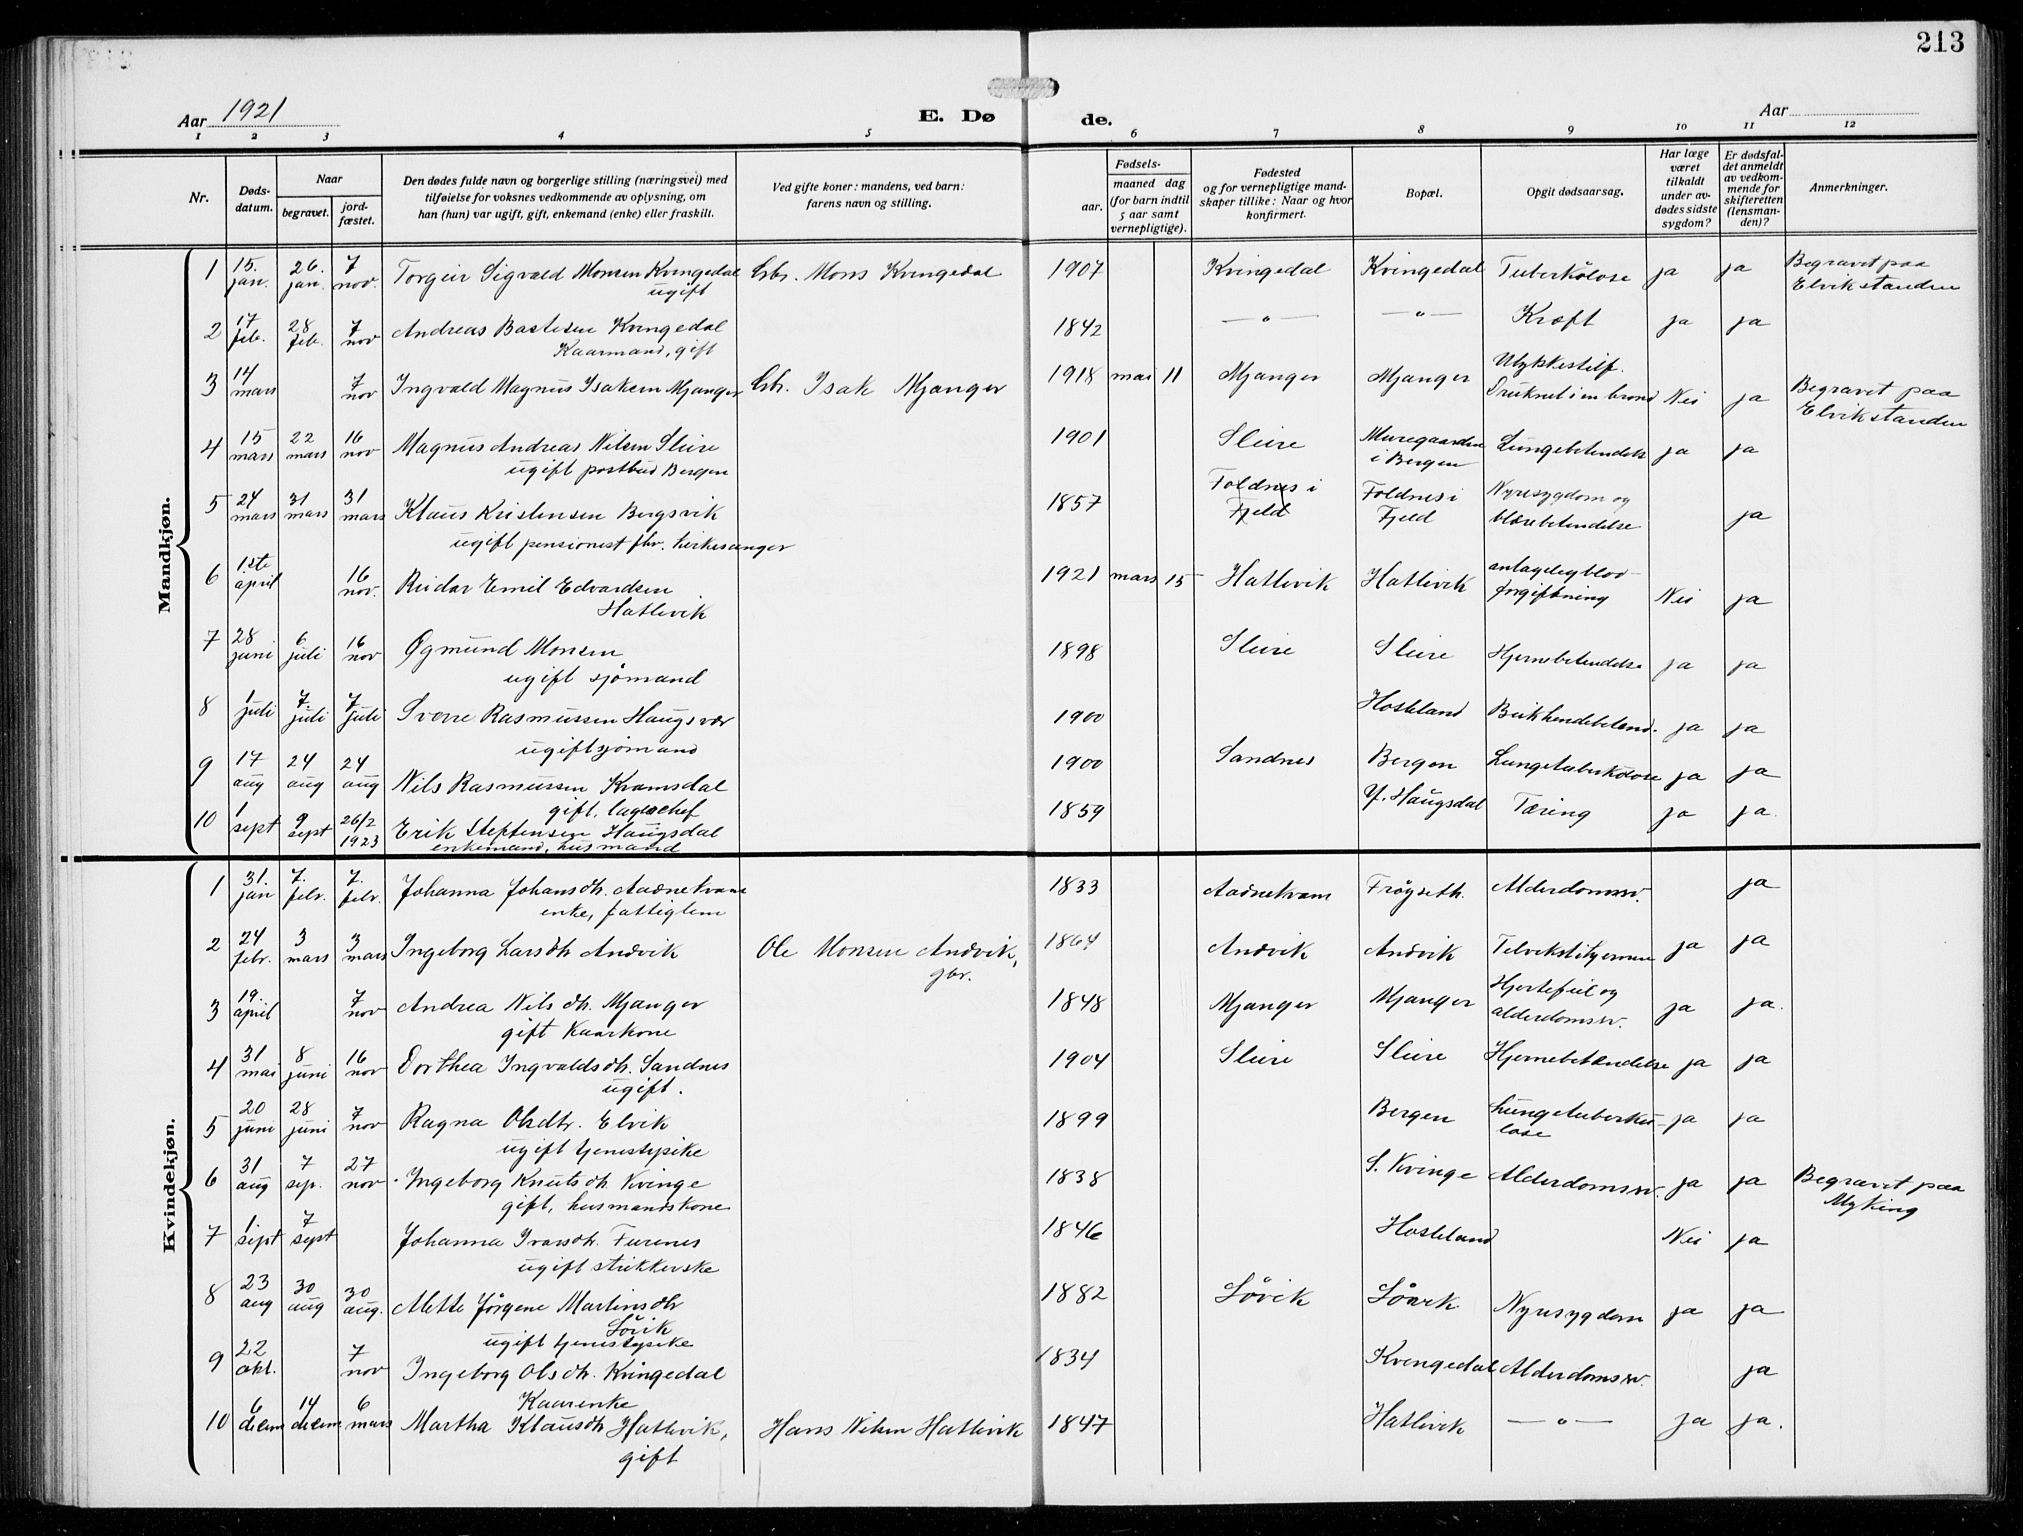 213
Aar 1921
E. Dø de.
Aar
1 2 3 4 5 6 7 8 9 10 11 12
Nr.
Døds-datum.
Naar
begravet.
jord-fæstet.
Den dødes fulde navn og borgerlige stilling (næringsvei) med
tilføielse for voksnes vedkommende av oplysning, om
han (hun) var ugift, gift, enkemand (enke) eller fraskilt.
Ved gifte koner: mandens, ved barn:
farens navn og stilling.
Fødsels-
aar.
maaned dag
(for barn indtil
5 aar samt
vernepligtige).
Fødested
og for vernepligtige mand-
skaper tillike: Naar og hvor
konfirmert.
Bopæl.
Opgit dødsaarsag.
Har læge
været
tilkaldt
under av-
dødes sidste
sygdom?
Er dødsfal-
det anmeldt
av vedkom-
mende for
skifteretten
(lensman-
den)?
Anmerkninger.
Mandkjøn.
1 15. jan. 26. jan. 7 nov. Torgeir Sigvald Monsen Kvingedal Gbr. Mons Kvingedal 1907 Kvingedal Kvingedal Tuberkulose ja ja Begravet paa
ugift Elvikstanden
2 17 feb. 28 feb. 7 nov Andreas Bastesen Kvingedal 1842 —"— —"— Kræft ja ja
Kaarmand, gift
3 14 mars 7 nov Ingvald Magnus Isaksen Mjanger Gbr. Isak Mjanger 1918 mai 11 Mjanger Mjanger Ulykkestilf. Nei ja Begravet paa
Druknet i en brønd Elvikstanden
4 15 mars 22 mars 16 nov Magnus Andreas Nilsen Sleire 1901 Sleire Muregaarden Lungebetendels ja ja
ugift postbud Bergen i Bergen
5 24 mars 31 mars 31 mars Klaus Kristensen Bergsvik 1857 Foldnes i Foldnes i Nyresygdom og ja
ugift pensionist fhv. kirkesanger Fjeld Fjeld blærebetendelse
6 1ste april 16 nov. Reidar Emil Edvardsen 1921 mars 15 Hatlevik Hatlevik antagelig blod- Nei ja
Hatlevik forgiftning
7 28 juni 6 juli 16 nov Øgmund Monsen 1898 Sleire Sleire Hjernebetendelse ja ja
ugift sjømand
8 1 juli 7. juli 7 juli Sverre Rasmussen Haugsvær 1900 Hosteland Bukhendebetend. ja ja
ugift sjømand
9 17 aug 24 aug 24 aug Nils Rasmussen Kramsdal 1900 Sandnes Bergen Lungetuberkulose ja ja
gift, lagerchef
10 1 sept 9 sept 26/2 1923 Erik Steffensen Haugsdal 1859 Y. Haugsdal Tæring ja ja.
enkemand, husmand
Kvindekjøn.
1 31. jan 7. febr. 7. febr. Johanna Johansdtr. Aadnekvam 1833 Aadnekvam Frøyseth. Alderdomssv. ja
enke, fattiglem
2 24 febr. 3 mars 3 mars Ingeborg Larsdtr Andvik Ole Monsen Andvik, 1864 Andvik Andvik ja ja
gbr.
3 19 april 7 nov Andrea Nilsdtr. Mjanger 1848 Mjanger Mjanger Hjertefeil og ja ja.
gift Kaarkone alderdomssv.
4 31 mai 8 juni 16 nov Dorthea Ingvaldsdtr. Sandnes 1904 Sleire Sleire Hjernebetændelse ja ja
ugift.
5 20 juni 28 juni 7 nov Ragna Olsdtr. Elvik 1899 Bergen Lungetuberku- ja ja
ugift tjenestepike lose
6 31 aug 7 sep. 27 nov. Ingeborg Knutsdtr Kvinge 1838 S. Kvinge Alderdomssv. ja ja Begravet paa
gift, husmandskone Myking
7 1 sept 7 sept Johanna Ivarsdtr. Furenes 1846 Hosteland Nei ja
ugift strikkerske
8 23 aug 30 aug 30 aug. Mette Jørgene Martinsdtr 1882 Søvik Nyresygdom ja ja
Søvik
ugift tjenestepike
9 22 okt. 7 nov Ingeborg Olsdtr. Kvingedal 1834 Kvingedal Alderdomssv. ja
Kaarenke
10 6 decem 14 decem 6 mars Martha Klausdtr Hatlevik, Hans Nilsen Hatlevik 1847 Hatlevik —"— ja ja.
gift